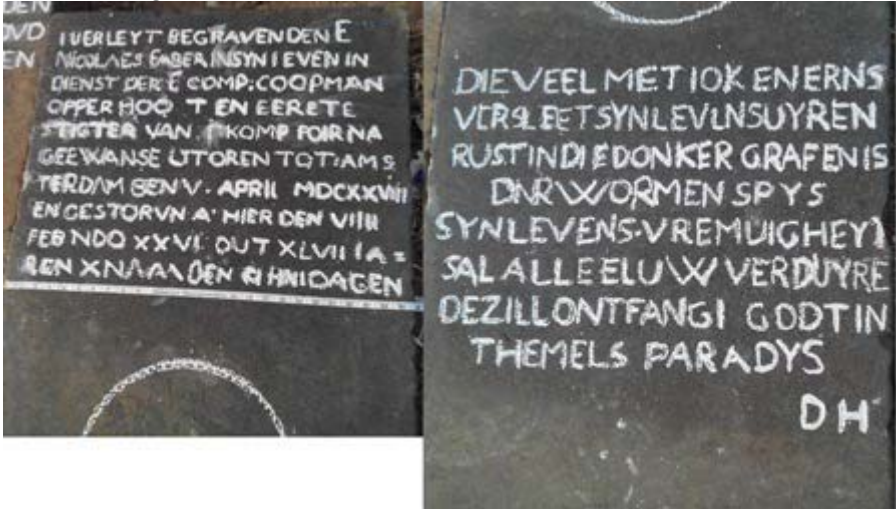 EN
OVD
EN
I VERLEYT BEGRAVEN DEN E
NICOLAES EMBER IN SYN IEVEN IN
DIENST DER E COMP. COOPMAN
OPPER HOO T EN EERETE
STIGTER VAN KOMP
TOT AMS
TERDAM DEN V. APRIL MDCXXVIII
EN GESTORVN A' HIER DEN VIIII
FEB NDO XXVI OUT XLVII IA =
REN DAGEN
DIE VEEL MET IOK EN ERNS
VERSLEET SYN LEVLNS UYREN
RUST IN DIE DONKER GRAF EN IS
DNR WORMEN SPYS
SYN LEVENS. VREMUIGHEYT
SAL ALLE ELUW VERDUYRE
DE ZILL ONTFANGI GODT IN
THEMELS PARADYS
DH